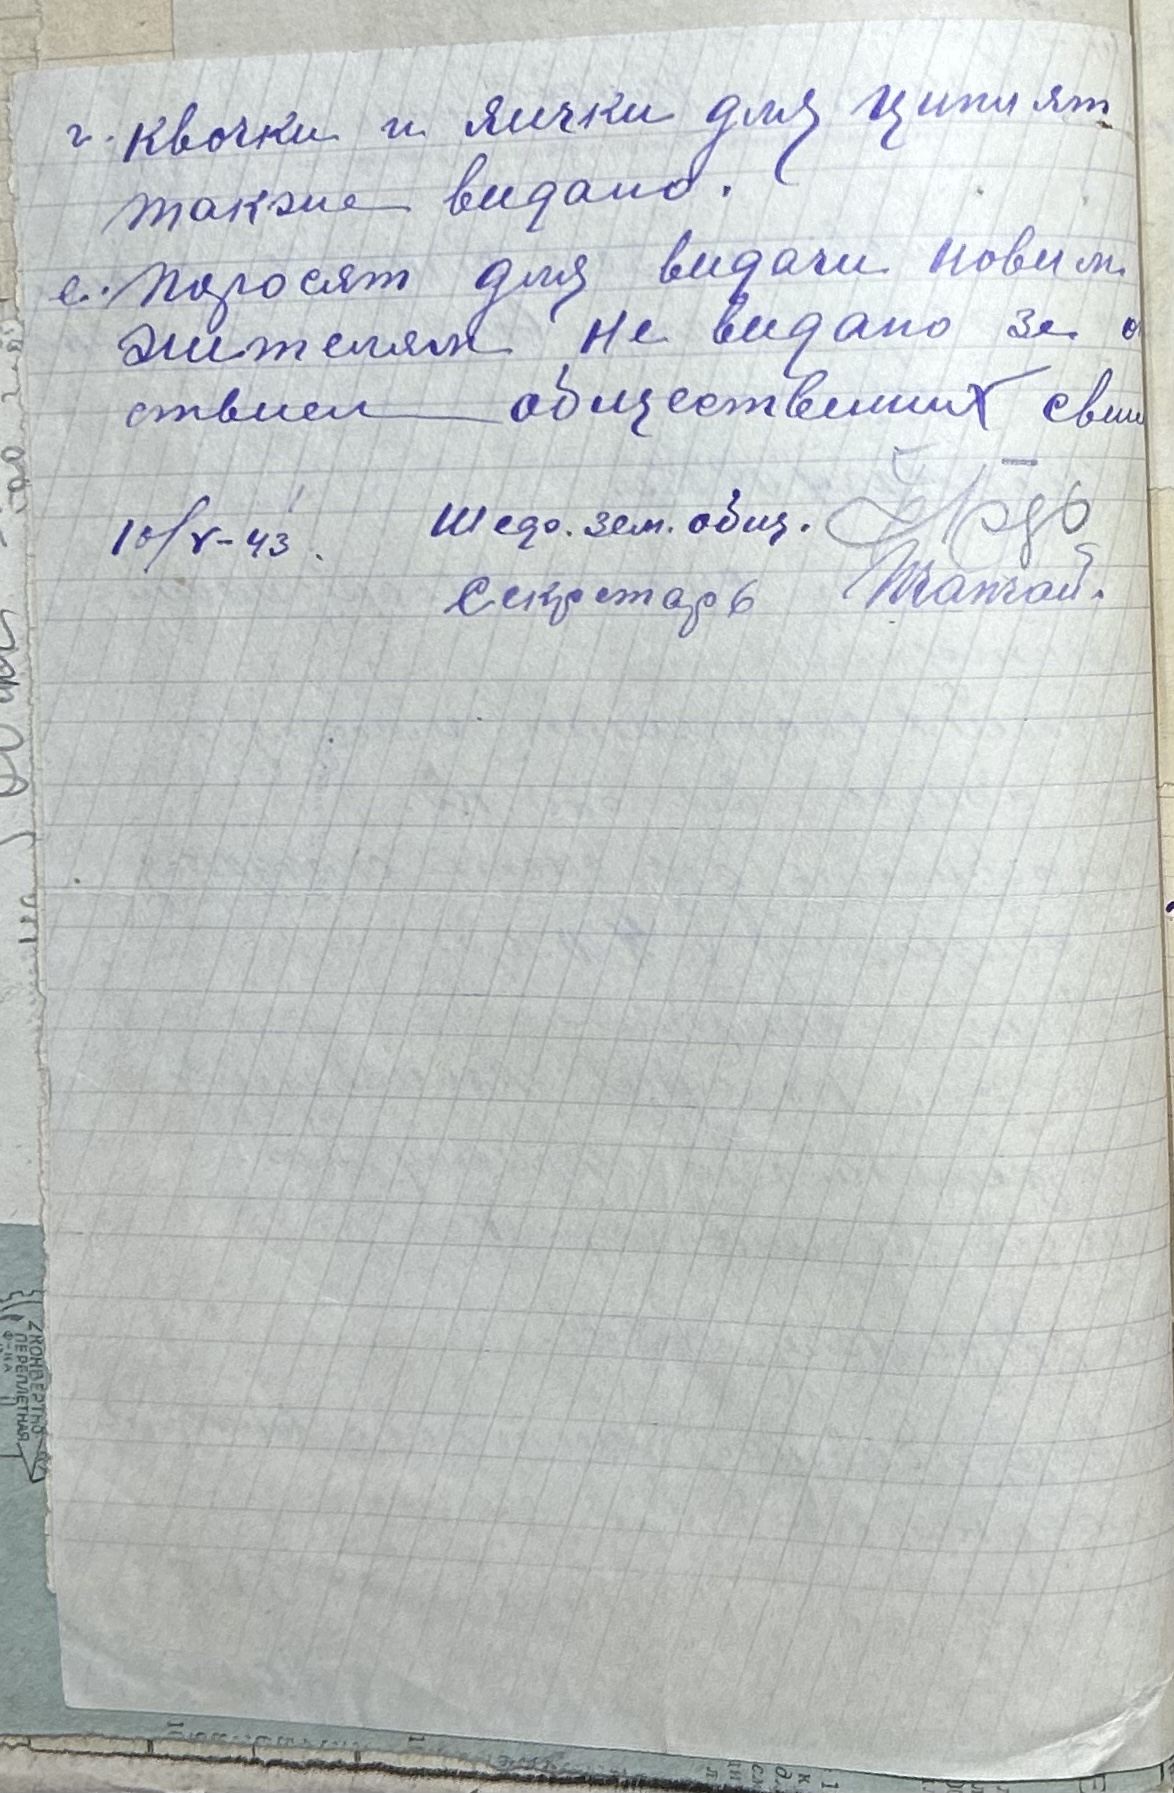 г. квочки и яички для циплят
также видано.
е. Поросят для видачи новим
жителям не видано за о
ствием общественних свин
10/V-43. Шедо. зем. общ.
Секретарь
2 КОНВЕРТНО
ПЕРЕПЛЕТНАЯ
Ф-КА